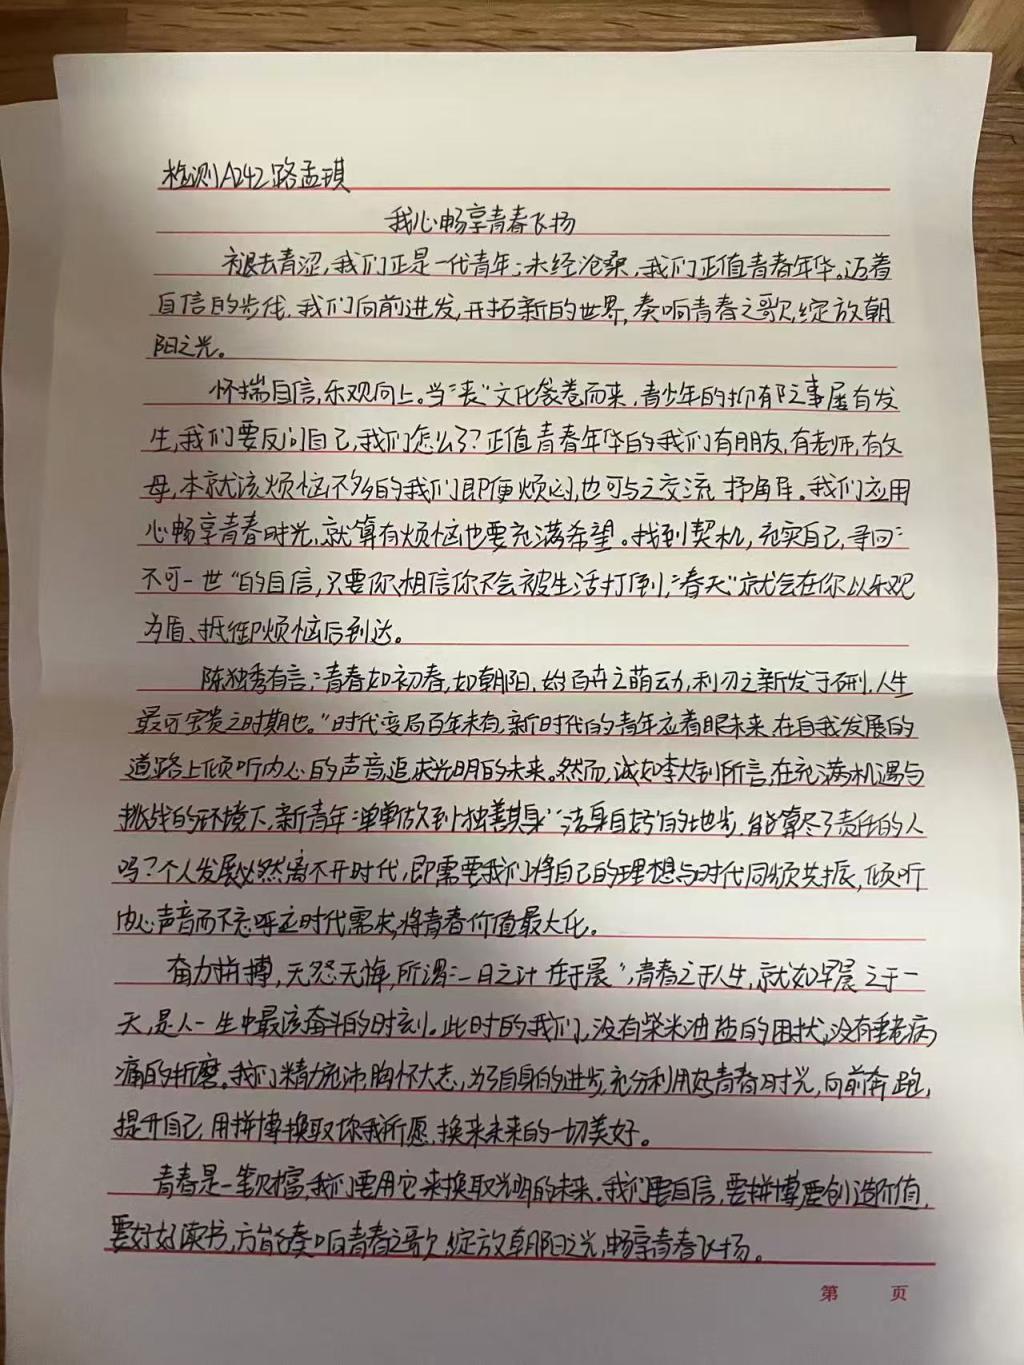 检测A242路孟琪
我心畅享青春飞扬
褪去青涩,我们正是一代青年;未经沧桑,我们正值青春年华。迈着
自信的步伐,我们向前进发,开拓新的世界,奏响青春之歌,绽放朝
阳之光。
怀揣自信,乐观向上。当“丧”文化袭卷而来,青少年的抑郁之事屡有发
生,我们要反问自己,我们怎么了?正值青春年华的我们有朋友,有老师,有父
母,本就该烦恼不多的我们即便烦闷,也可与之交流,抒角库。我们应用
心畅享青春时光,就算有烦恼也要充满希望。找到契机,充实自己,寻回“
不可一世”的自信,只要你相信你不会被生活打倒,“春天”就会在你以乐观
为盾、抵御烦恼后到达。
陈独秀有言:“青春如初春,如朝阳,如百卉之萌动,利刃之新发于硎,人生
最可宝贵之时期也。”时代变局百年未有,新时代的青年应着眼未来,在自我发展的
道路上倾听内心的声音,追求光明的未来。然而,诚如李大钊所言,在充满机遇与
挑战的环境下,新青年“单单做到‘独善其身’“洁身自好”的地步,能算尽了责任的人
吗?个人发展必然离不开时代,即需要我们将自己的理想与时代同频共振,倾听
内心声音而不忘呼应时代需求,将青春价值最大化。
奋力拼搏,无怨无悔,所谓“一日之计在于晨”,青春之于人生,就如早晨之于一
天,是人一生中最该奋斗的时刻。此时的我们,没有柴米油盐的困扰,没有重病
痛的折磨。我们精力充沛,胸怀大志,为了自身的进步,充分利用好青春时光,向前奔跑,
提升自己,用拼搏换取你我所愿,换来未来的一切美好。
青春是一笔财富,我们要用它来换取光明的未来。我们要自信,要拼搏,要创造价值,
要好好读书,方能奏响青春之歌,绽放朝阳之光,畅享青春飞扬。
第 页